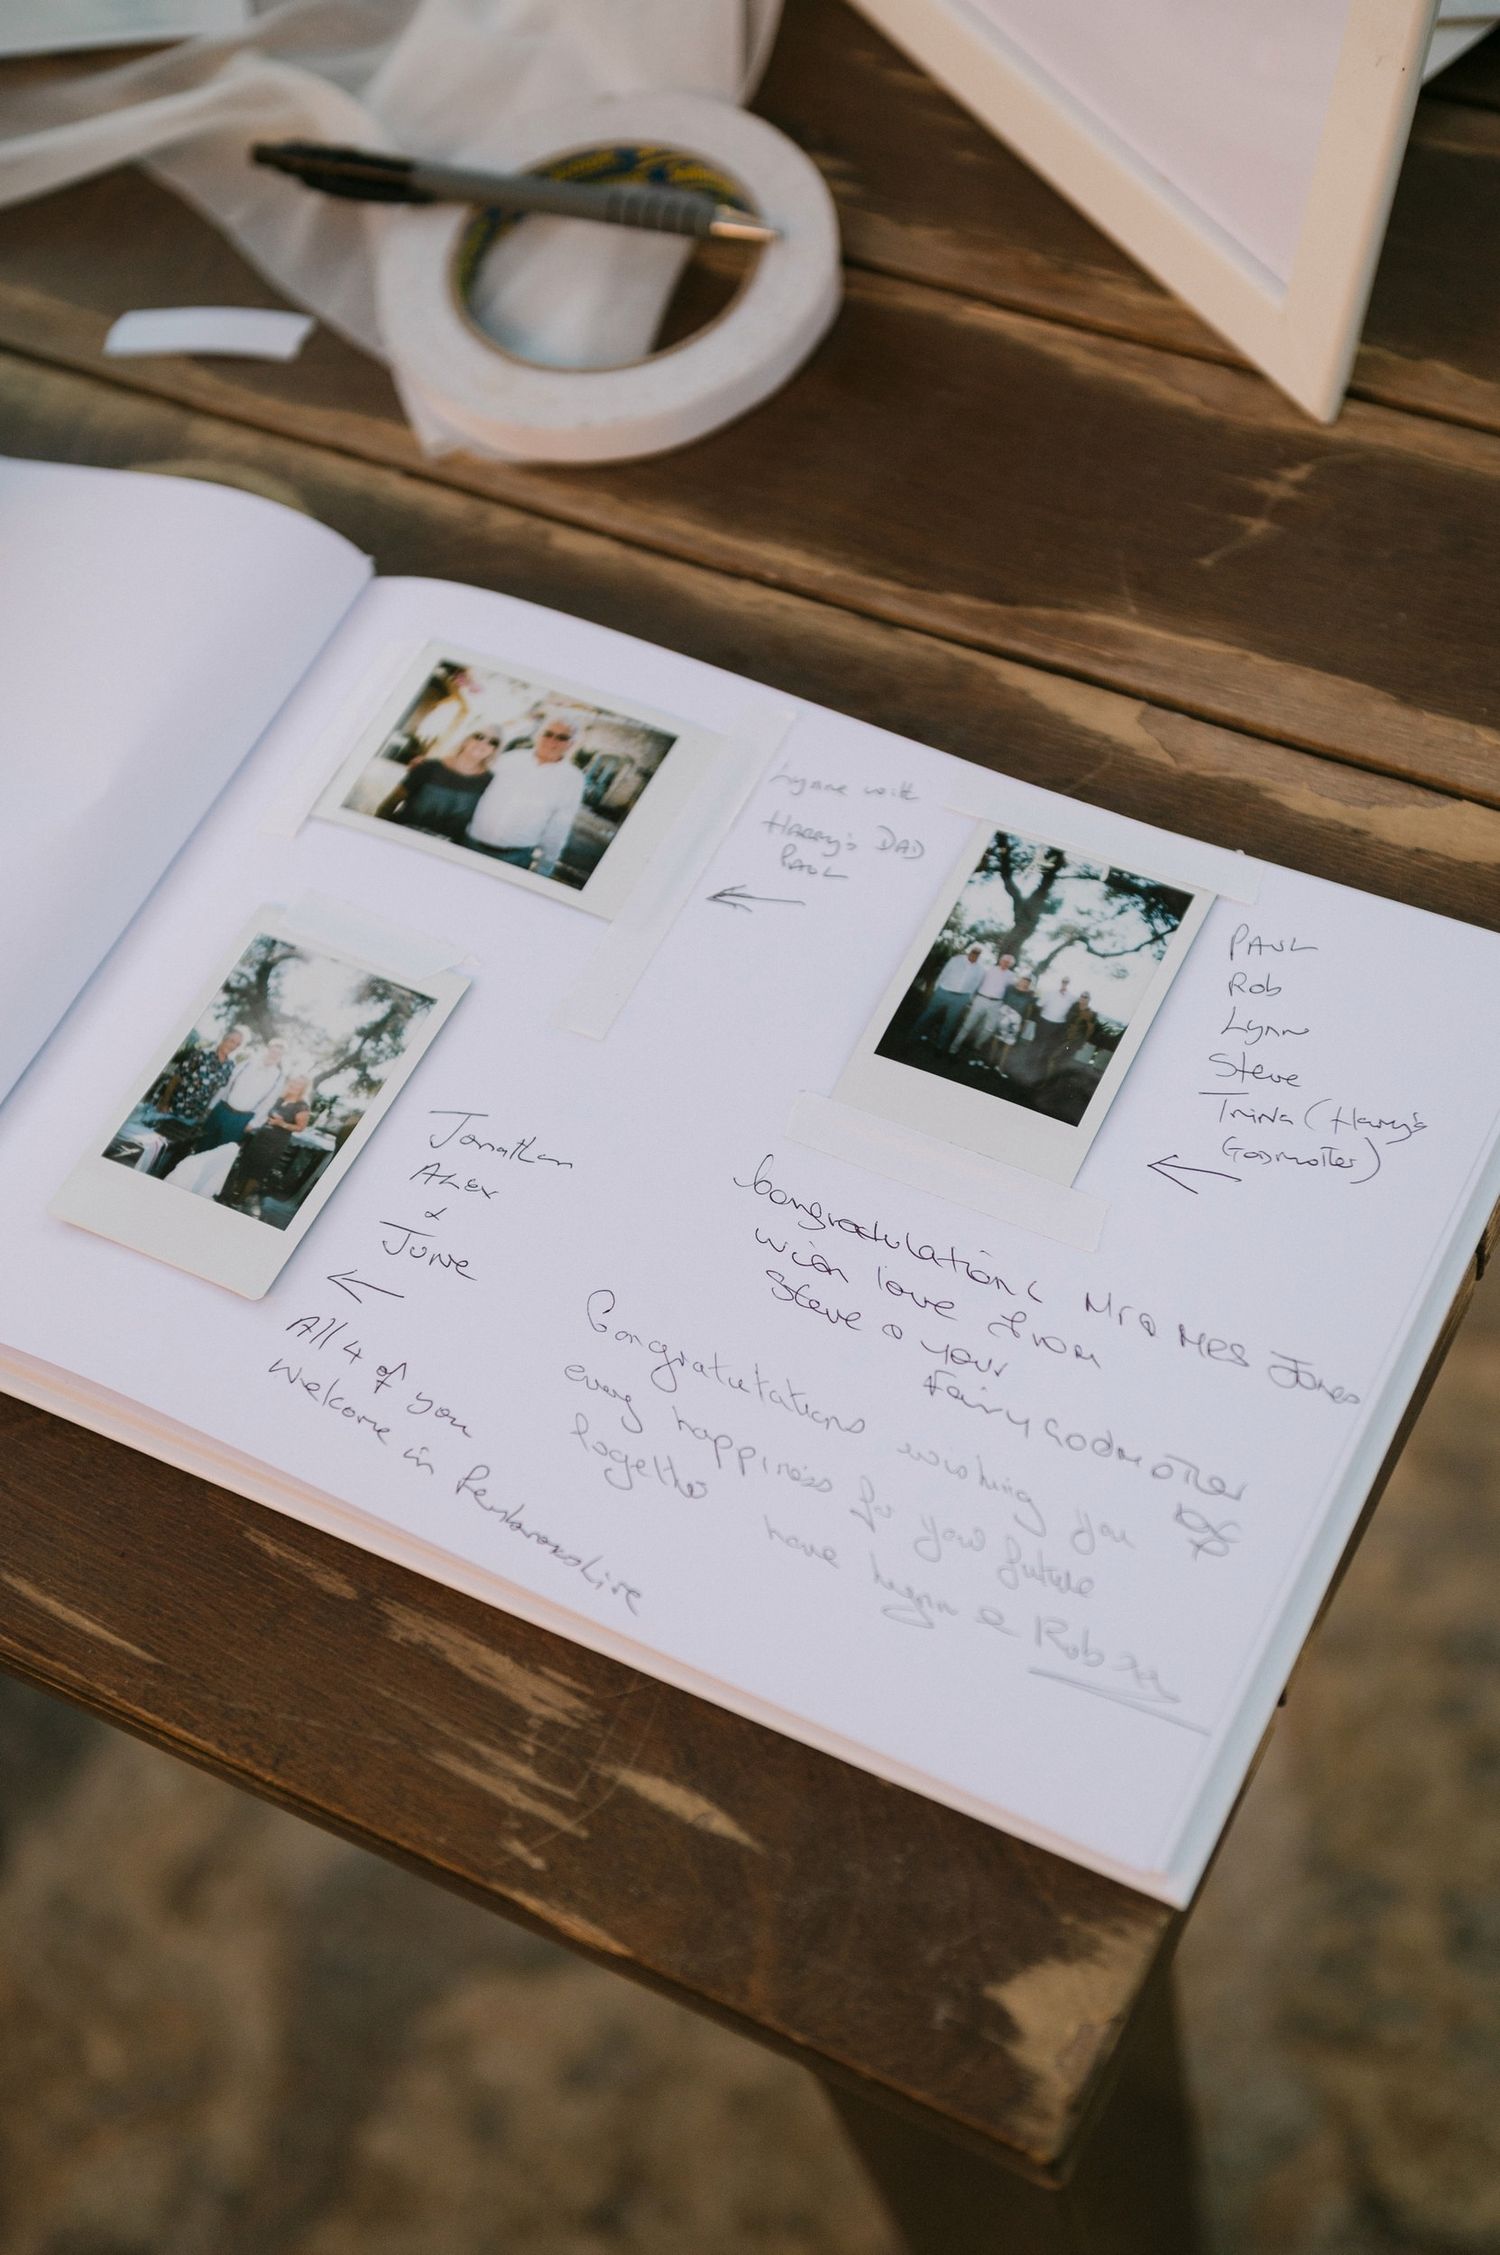 Lynne with
HARRY's DAD
PAUL
PAUL
Rob
Lynn
Steve
Trina (Harry's
Godmother)
Jonathan
ALEX
&
JUNE
All 4 of you
Welcome in Pembrokeshire
Congratulations Mr & MRS Jones
with love from
Steve & your
Fairy Godmother
Congratulations wishing you
every happiness for your future
together
Lynn & Rob xx